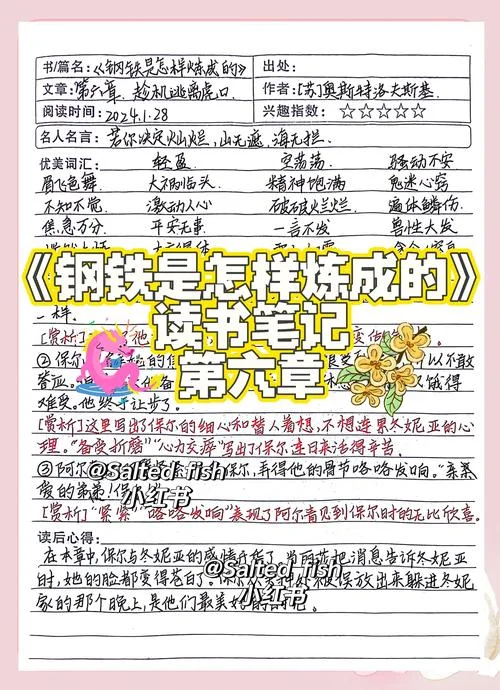 书/篇名:《钢铁是怎样炼成的》 出处:
文章:第六章、趁机逃离虎口. 作者:[苏]奥斯特洛夫斯基.
阅读时间:2024.1.28 兴趣指数:☆☆☆☆☆
名人名言:若你决定灿烂,山无遮,海无拦.
优美词汇: 轻盈 空荡荡 骚动不安
眉飞色舞 大祸临头 精神饱满 鬼迷心窍
不知不觉 激动人心 破破烂烂 遍体鳞伤
焦急万分 平安无事 一言不发 兽性大发
《钢铁是怎样炼成的》
读书笔记
第六章
一样.
[赏析]
② 保尔 以不敢
答应. 饿得
难受.他终于让步了.
[赏析]这里写出了保尔的细心和替人着想,不想连累冬妮亚的心
理。"备受折磨""心力交瘁"写出了保尔连日来活得辛苦.
③ 阿尔 保尔,弄得他的骨节咯咯发响。"亲
爱的弟弟!
@Salted fish
小红书
[赏析]"紧紧""咯咯发响"表现了阿尔青见到保尔时的无比欣喜。
读后心得:
在本章中,保尔与冬妮亚的感情升华了.当丽莎把消息告诉冬妮亚
时,她的脸都变得苍白了。保尔 被误放出来躲进冬妮
家的那个晚上,是他们最美好的 。
@Salted fish
小红书